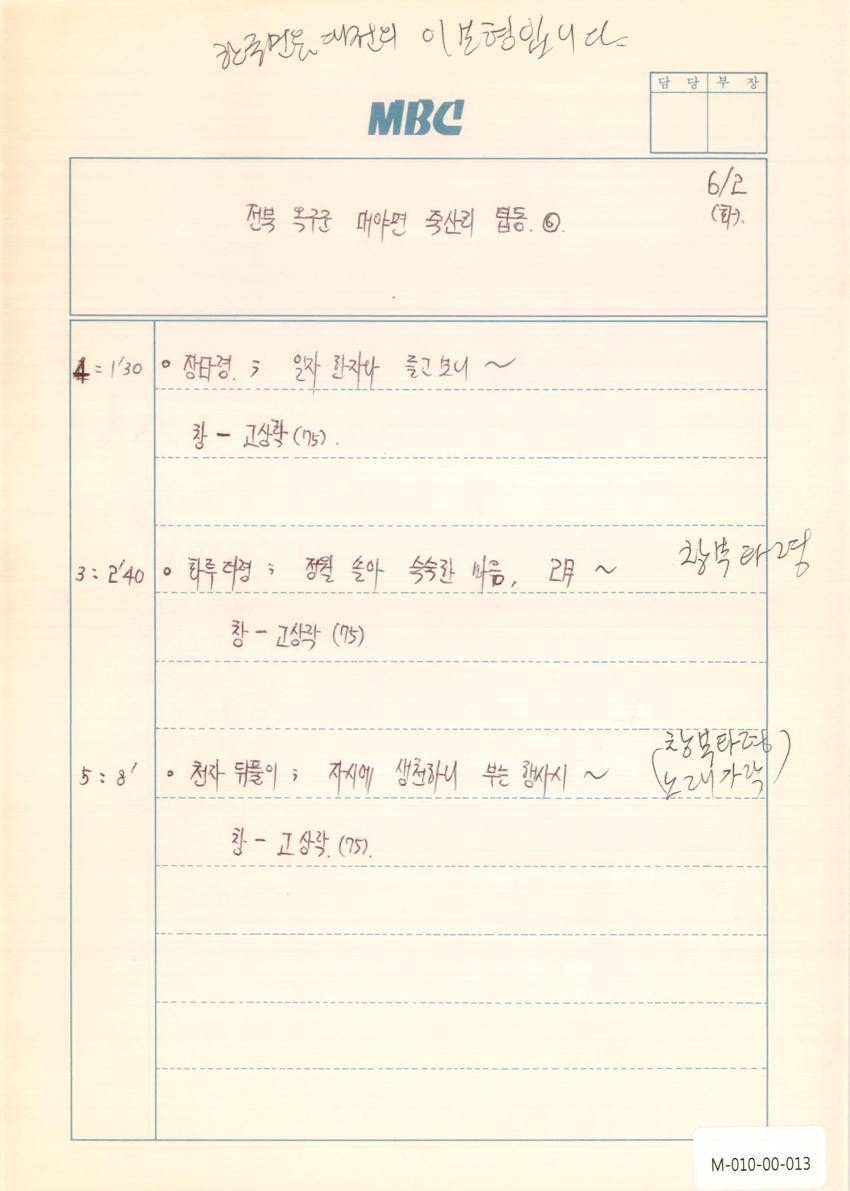 한국민요대전의 이보형입니다
담 당 부 장
MBC
6/2
(화).
전북 옥구군 대야면 죽산리 탑동. ⑥.
4 = 1'30 ∘ 장타령. ; 일자 한자나 들고보니 ~
창 - 고상락 (75).
3 : 2'40 ∘ 화투타령 ; 정월 솔아 속속한 마음, 2月 ~ 창부타령
창 - 고상락 (75)
5 : 8' ∘ 천자 뒤풀이 ; 자시에 생천하니 부는 행사시 ~ (창부타령
노래가락)
창 - 고상락. (75).
M-010-00-013